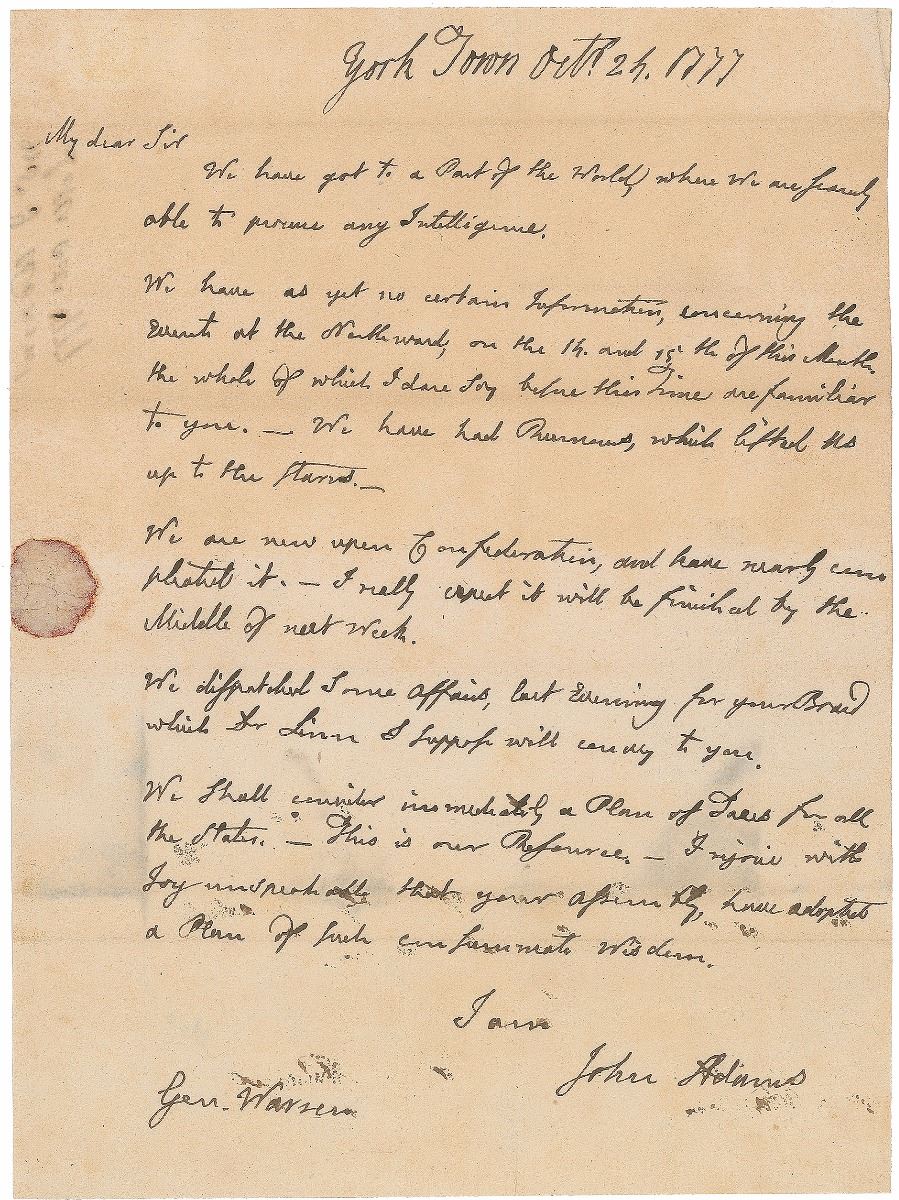 York Town Octr. 24. 1777
My dear Sir
We have got to a Part of the World, where We are scarcely
able to procure any Intelligence.
We have as yet no certain Information, concerning the
Events at the Northward, on the 14. and 15th of this Month,
the whole of which I dare say before this Time are familiar
to you. — We have had Rumours, which lifted Us
up to the Starrs. —
We are now upon Confederation, and have nearly com
pleated it. — I really expect it will be finished by the
Middle of next Week.
We dispatched Some affairs, last Evening for your Board
which Dr Linn I suppose will convey to you.
We Shall consider immediately a Plan of Taxes for all
the States. — This is our Resource. — I rejoice with
Joy unspeakable that your assembly, have adopted
a Plan of such consummate Wisdom.
I am
John Adams
Gen. Warren